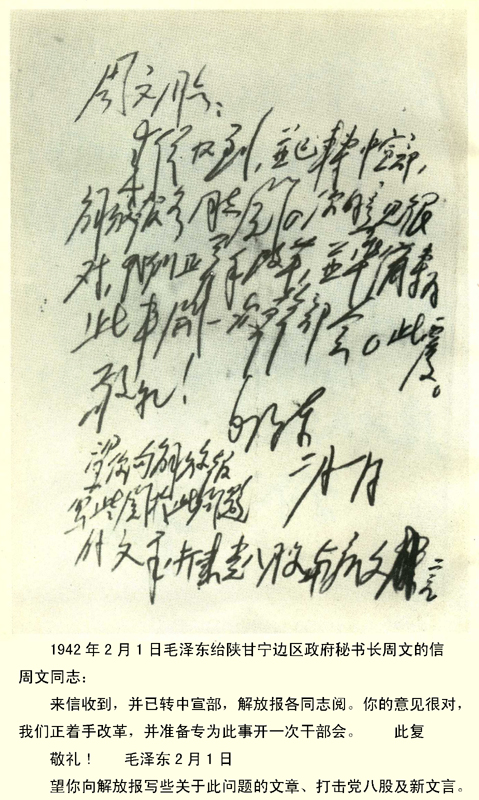 周文同志：
来信收到，並已转中宣部，
解放报各同志阅。你的意见很
对，我们正着手改革，並准备专为
此事开一次干部会。此复。
敬礼！
毛泽东
二月一日
望你向解放报
写些关于此问题
文 击党八股 新文
1942年2月1日毛泽东绐陕甘宁边区政府秘书长周文的信
周文同志：
来信收到，并已转中宣部，解放报各同志阅。你的意见很对，
我们正着手改革，并准备专为此事开一次干部会。 此复
敬礼！ 毛泽东2月1日
望你向解放报写些关于此问题的文章、打击党八股及新文言。